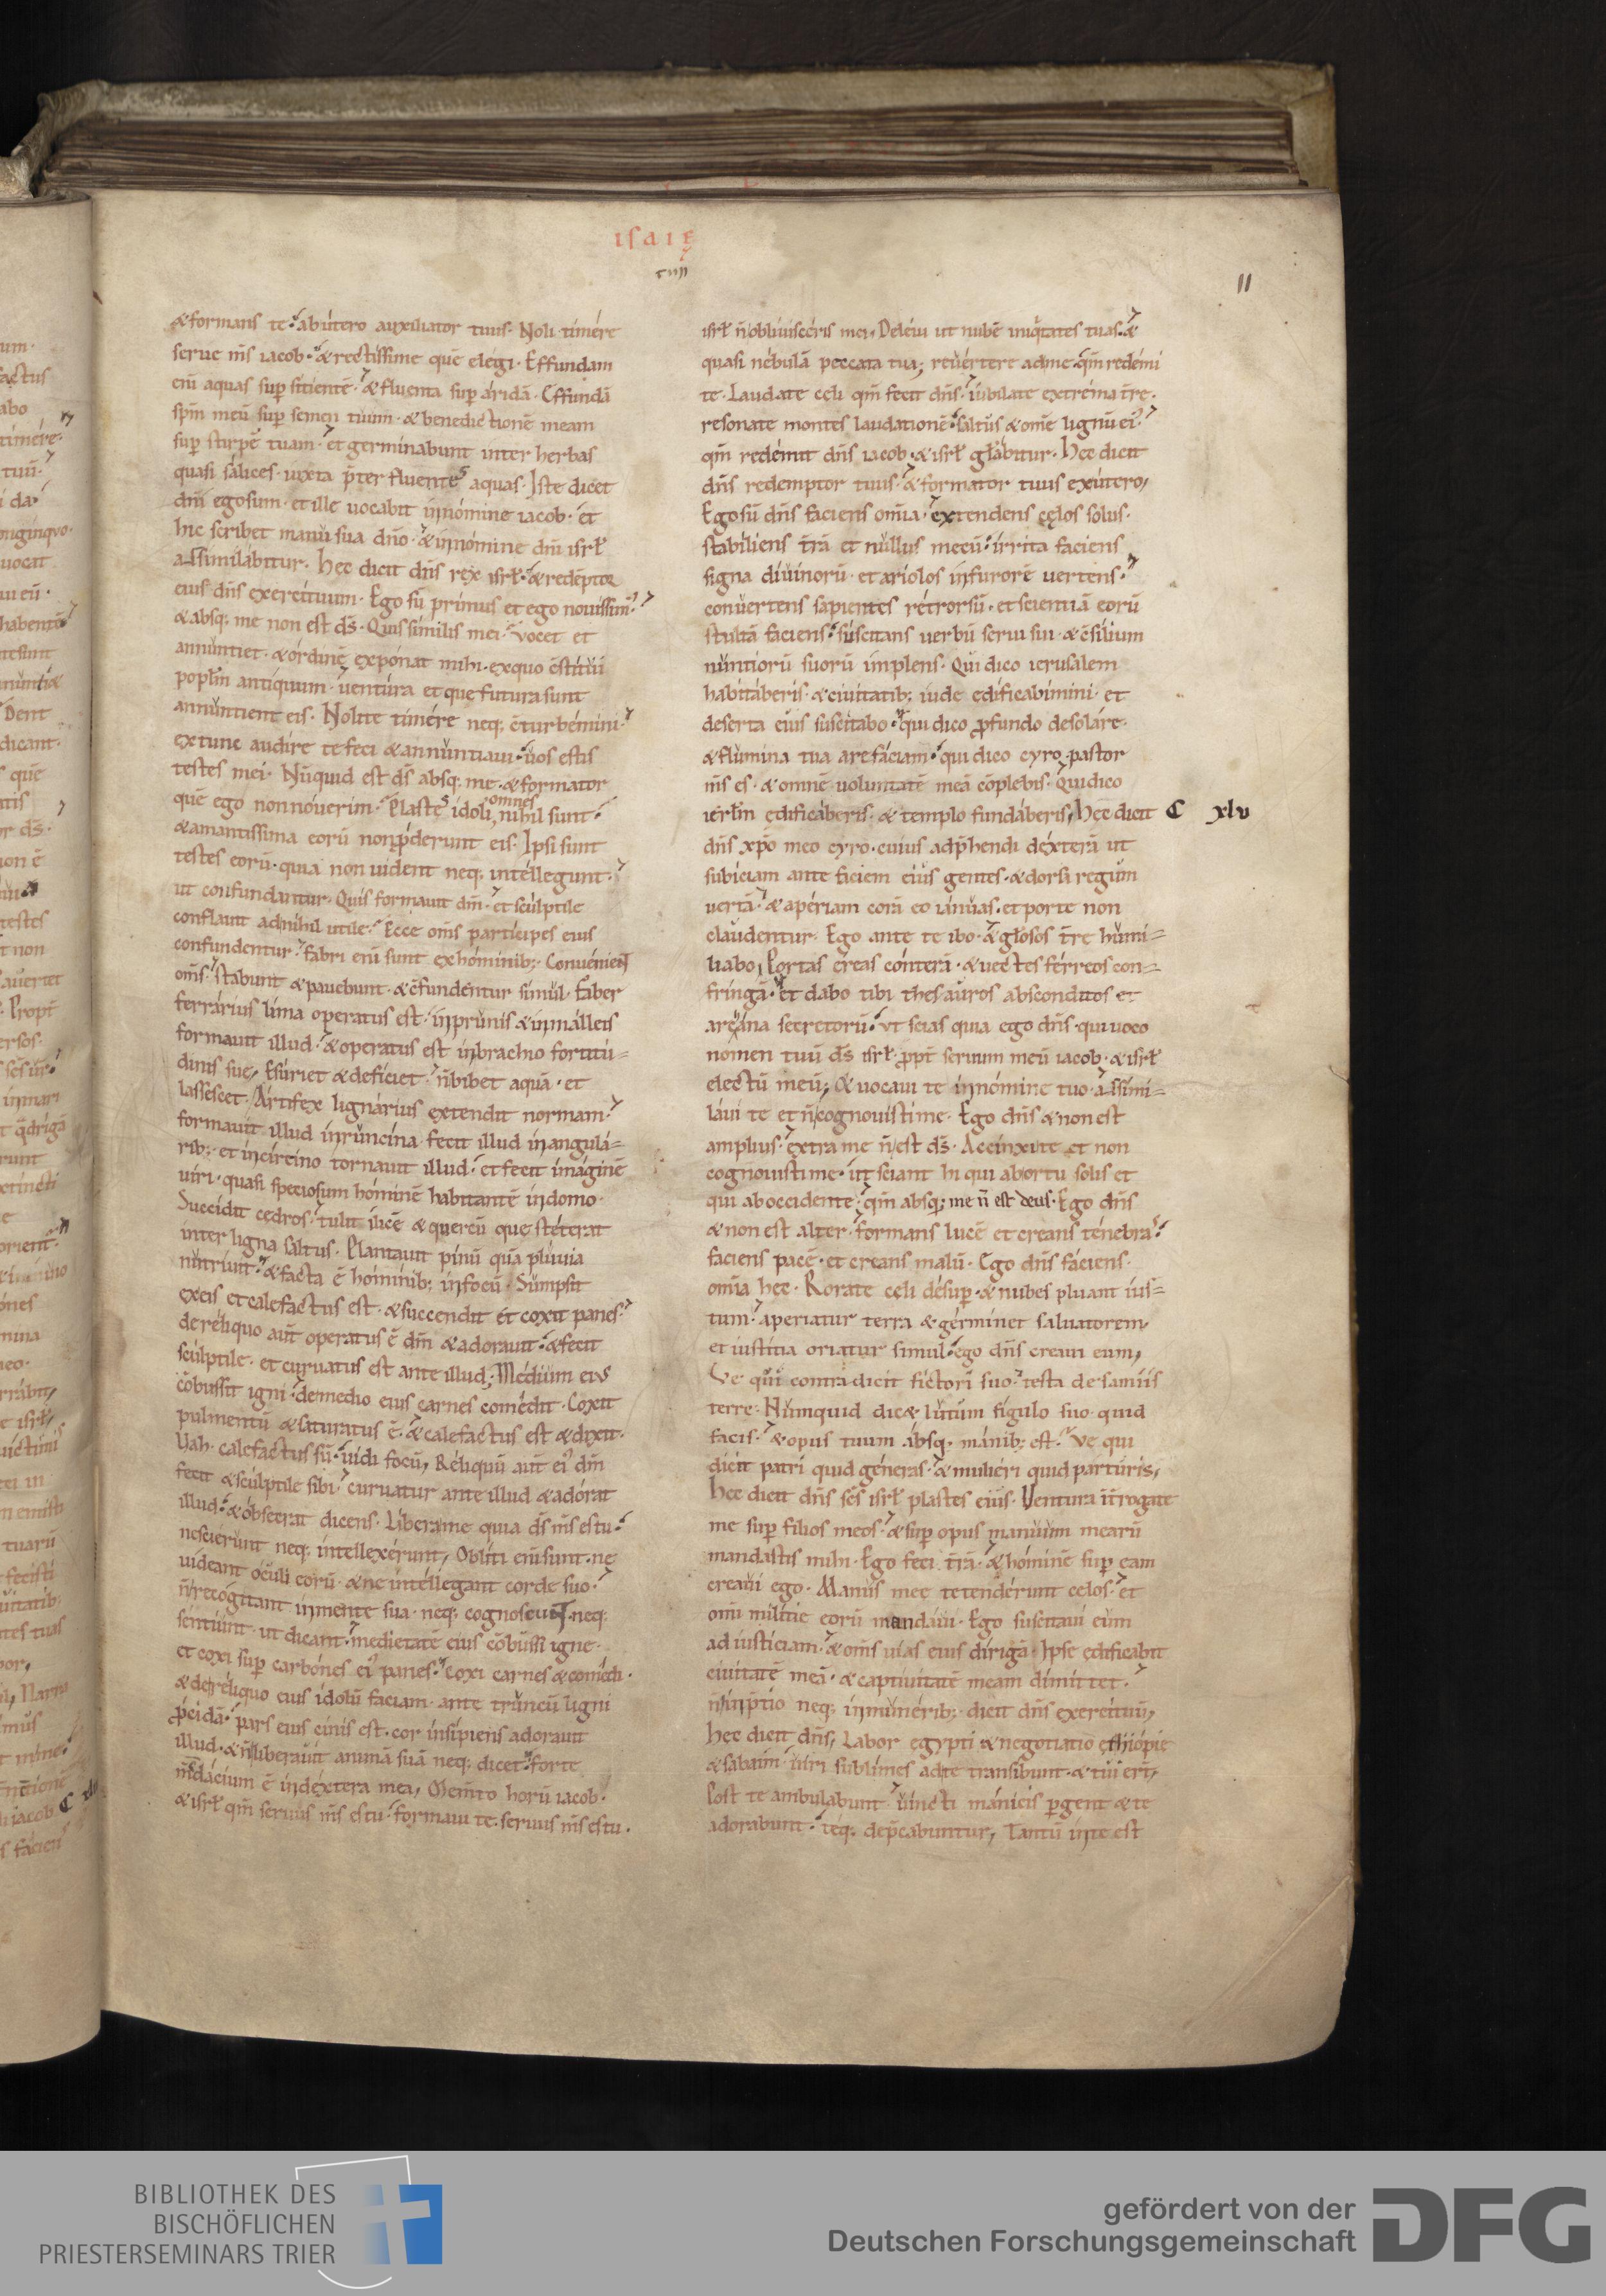 ISAIĘ
11
& formans te· ab utero auxiliator tuus· Noli timére
serue m̄s iacob· & rectissime quē elégi· Effundam
eni aquas sup̄ sitientē· & fluenta sup̄ áridā· Effundā
sp̄m meū sup̄ semen tuum· & benedictionē meam
sup̄ stirpē tuam· et germinabunt inter herbas
quasi sálices· iuxta p̄ter fluentes aquas· Iste dicet
dn̄i ego sum· et ille uocabit in nómine iacob· et
hic scribet manu sua dn̄o· & in nómine dn̄i isrł
assimilábitur· hec dicit dn̄s rex isrł· & redēptor
eius dn̄s exercituum· Ego sū primus et ego nouissim᾽·
& absq; me non est d̄s· Quis símilis mei· uocet et
annuntiet· & órdinē expónat mihi· ex quo c̄stitui
popl̄m antiquum· uentúra et que futura sunt
annúntient eis· Nolite timére neq; c̄turbémini·
ex tunc audire te feci & annúntiaui· uos estis
testes mei· Nūquid est d̄s absq; me· & formator
quē ego non nóuerim· Plastes idoli omnes nihil sunt·
& amantissima eorū non p̄derunt eis· Ipsi sunt
testes eorū· quia non uident neq; intéllegunt·
ut confundantur· Quis formauit dm̄· et scúlptile
conflauit ad nihil utile· Ecce om̄s partícipes eius
confundentur· fabri eni sunt ex homínib;· Conuénient
om̄s· stabunt & pauebunt· & c̄fundentur simul· Faber
ferrárius lima operatus est· in prunis & in málleis
formauit illud· & operatus est in brachio fortitu-
dinis sue, Esúriet & defíciet· n̄ bibet aquā· et
lassescet· Artifex lignárius extendit normam·
formauit illud in runcina· fecit illud in angulá-
rib;· et in círcino tornauit illud· et fecit imáginē
uiri· quasi speciosum hóminē habitantē in domo·
Succidit cedros· tulit ilicē & quercū que stéterat
inter ligna saltus· Plantauit pinū quā plúuia
nutriuit· & facta ē hominib; in focū· Sumpsit
ex eis et calefactus est· & succendit et coxit panes·
de réliquo aut̄ operatus ē dm̄ & adorauit· & fecit
scúlptile· et curuatus est ante illud; Médium eius
cōbussit igni· de medio eius carnes comédit· Coxit
pulmentū & saturatus ē· & calefactus est & dixit·
Uah· calefactus sū· uidi focū, Réliquū aut̄ ei᾽ dm̄
fecit & scúlptile sibi· curuatur ante illud & adórat
illud· & óbsecrat dicens· Libera me quia d̄s m̄s es tu·
nescierunt neq; intellexérunt, Oblíti eni sunt· ne
uideant óculi eorū· & ne intéllegant corde suo·
n̄ recógitant in mente sua· neq; cognoscunt· neq;
sentiunt· ut dicant· medietatē eius cōbussi igne·
et coxi sup̄ carbónes ei᾽ panes· coxi carnes & comédi·
& de réliquo eius idolū faciam· ante truncū ligni
p̄cidā· pars eius cinis est· cor insipiens adorauit
illud· & n̄ liberauit animā suā neq; dicet· forte
m̄dácium ē in déxtera mea, Mem̄to horū iacob·
& isrł qm̄ seruus m̄s es tu· formaui te· seruus m̄s es tu·
isrł n̄ obliuiscéris mei, Deleui ut nubē iniq̄tates tuas· &
quasi nébulā peccata tua; reuértere ad me· qm̄ redémi
te· Laudate cęli qm̄ fecit dn̄s· iubilate extréma t̄re·
resonate montes laudationē· saltus & omē lignū ei᾽·
qm̄ redémit dn̄s iacob· & isrł gł̄ábitur· Hec dicit
dn̄s redemptor tuus· & formator tuus ex útero,
Ego sū dn̄s faciens om̄ia· extendens cęlos solus·
stabíliens t̄rā et nullus mecū· írrita faciens
signa diuinorū· et ariolos in furorē uertens·
conuertens sapientes rétrorsū· et scientiā eorū
stultā faciens· súscitans uerbū serui sui· & c̄silium
nuntiorū suorū implens· Qui dico ierusalem
habitáberis· & ciuitatib; iude edificabimini· et
deserta eius suscitabo· qui dico p̄fundo desoláre·
& flúmina tua arefáciam· qui dico cyro· pastor
m̄s es· & omnē uoluntatē meā cōplebis· Qui dico
ierl̄m ędificáberis· & templo fundáberis, Hęc dicit C xlv
dn̄s xp̄o meo cyro· cuius adp̄hendi déxterā ut
subíciam ante fáciem eius gentes· & dorsa regum
uertā· & apériam corā eo iánuas· et porte non
claudentur· Ego ante te ibo· & gł̄osos t̄re humi-
liabo, Portas éreas cónterā· & uectes férreos con-
fringā· et dabo tibi thesauros absconditos et
arcána secretorū· ut scias quia ego dn̄s· qui uoco
nómen tuū d̄s isrł· p̄pt̄ seruum meū iacob· & isrł
electū meū, & uocaui te in nómine tuo· assimi-
láui te et n̄ cognouisti me· Ego dn̄s & non est
amplius· extra me n̄ est d̄s· Accinxi te et non
cognouisti me· ut sciant hi qui ab ortu solis et
qui ab occidente· qm̄ absq; me n̄ est deus· Ego dn̄s
& non est alter· formans lucē et creans ténebras·
faciens pacē· et creans malū· Ego dn̄s fáciens·
om̄ia hec· Rorate cęli désup̄· & nubes pluant ius-
tum· aperiatur terra & gérminet saluatorem,
et iustitia oriatur simul· ego dn̄s creaui eum,
Ve qui contradicit fictori suo· testa de samiis
terre· Numquid dic& lútum figulo suo· quid
facis· & opus tuum absq; mánib; est· Ve qui
dicit patri quid géneras· & mulíeri quid partúris,
Hec dicit dn̄s sc̄s isrł plastes eius· Ventura īt̄rogate
me sup̄ filios meos· & sup̄ opus manuum mearū
mandastis mihi· Ego feci t̄rā· & hóminē sup̄ eam
creaui ego· Manus mee tetendérunt celos· et
om̄i milítie eorū mandáui· Ego suscitaui eum
ad iusticiam· & om̄s uias eius dírigā· Ipse edificabit
ciuitatē meā· & captiuitatē meam dimittet·
n̄ in p̄tio neq; in munérib;· dicit dn̄s exercituū,
Hec dicit dn̄s, Labor egypti & negotiatio ęthiópie
& sabaim· uiri sublimes ad te transibunt· & tui er̄t,
Post te ambulabunt· uincti mánicis p̄gent & te
adorabunt· teq; dep̄cabuntur, Tantū in te est
BIBLIOTHEK DES
BISCHÖFLICHEN
PRIESTERSEMINARS TRIER
gefördert von der
Deutschen Forschungsgemeinschaft
DFG